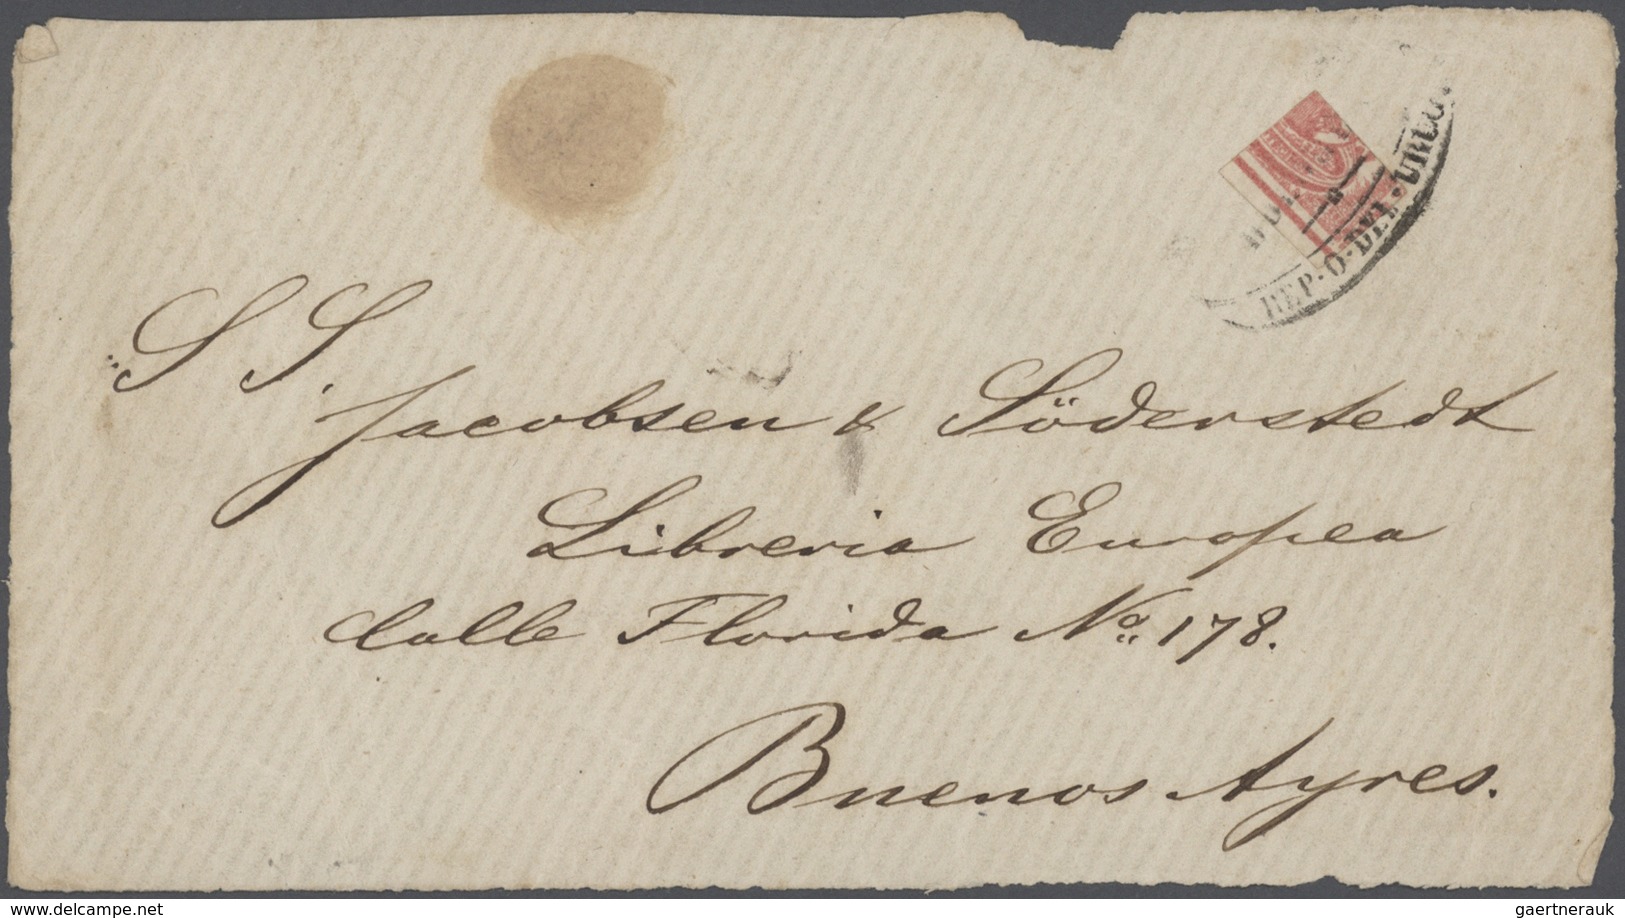 REP·O·DEL·URUG.
S S.
Jacobsen & Söderstedt
Libreria Europea
Calle Florida No. 178.
Buenos Ayres.
www.delcampe.net
gaertnerauk